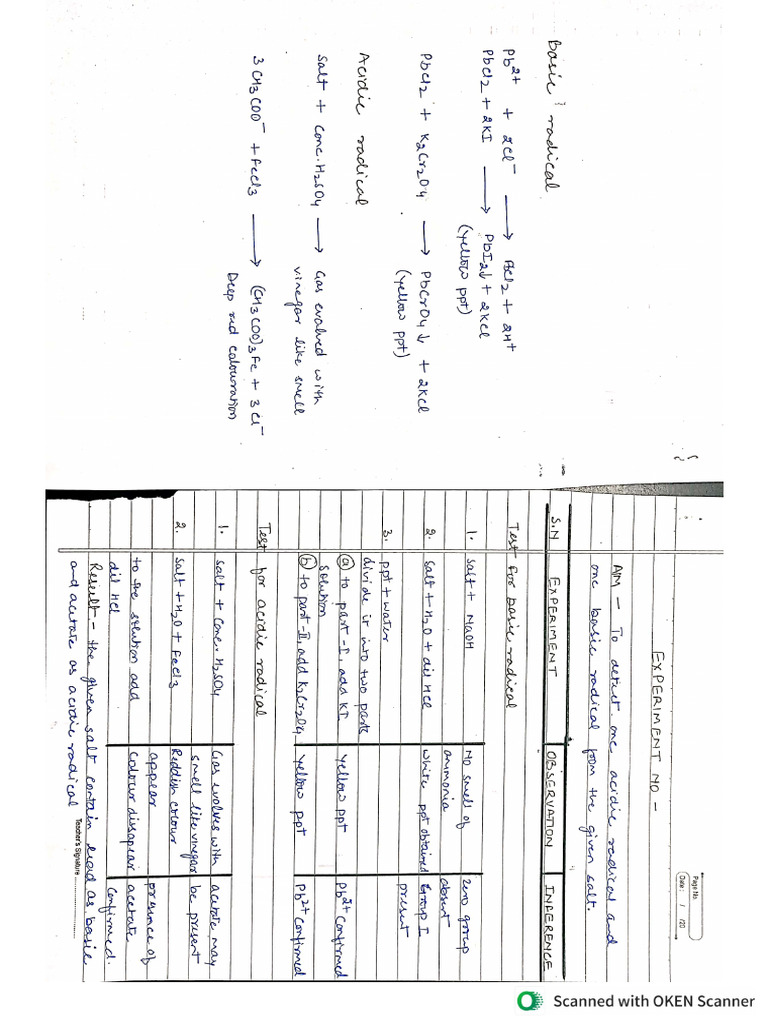 Basic radical
Pb2+ + 2Cl- ⟶ PbCl2 + 2H+
PbCl2 + 2KI ⟶ PbI2↓ + 2KCl
(yellow ppt)
PbCl2 + K2Cr2O4 ⟶ PbCrO4↓ + 2KCl
(yellow ppt)
Acidic radical
Salt + Conc. H2SO4 ⟶ Gas evolved with
vinegar like smell
3CH3COO- + FeCl3 ⟶ (CH3COO)3Fe + 3Cl-
Deep red colouration
Page No.
Date: / /20
EXPERIMENT NO -
AIM - To detect one acidic radical and
one basic radical from the given salt.
S.N EXPERIMENT OBSERVATION INFERENCE
Test for basic radical
1. salt + NaOH No smell of zero group
ammonia absent
2. salt + H2O + dil HCl white ppt obtained Group I
present
3. ppt + water
divide it into two parts
(a) to part-I, add KI yellow ppt Pb2+ confirmed
solution
(b) to part-II, add K2Cr2O4 yellow ppt Pb2+ confirmed
Test for acidic radical
1. salt + Conc. H2SO4 Gas evolves with acetate may
smell like vinegar be present
2. salt + H2O + FeCl3 Reddish colour
appear presence of
to the solution add colour dissapear acetate
dil HCl confirmed.
Result - the given salt contain lead as basic
and acetate as acidic radical
Teacher's Signature
Scanned with OKEN Scanner